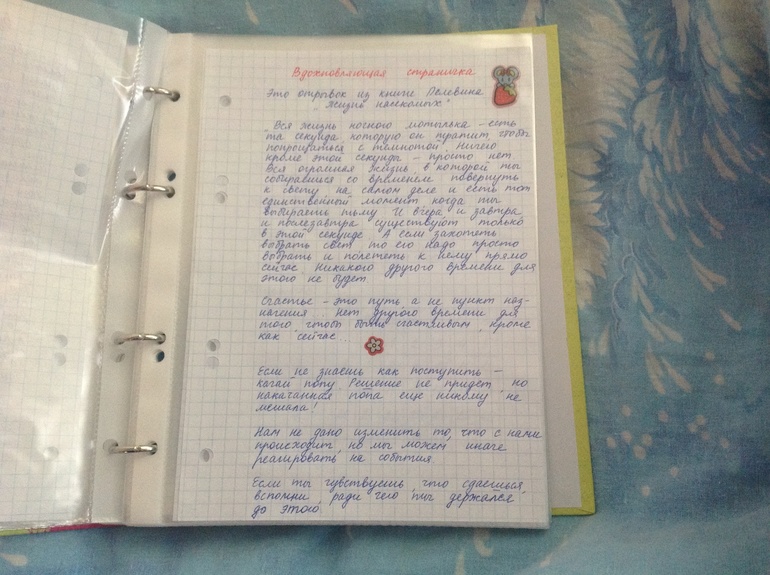 Вдохновляющая страничка
Это отрывок из книги Пелевина
„Жизнь насекомых"
„Вся жизнь ночного мотылька – есть
та секунда, которую он тратит чтобы
попрощаться с темнотой. Ничего
кроме этой секунды – просто нет.
Вся огромная жизнь, в которой ты
собираешься со временем повернуть
к свету, на самом деле и есть тот
единственный момент когда ты
выбираешь тьму. И вчера и завтра
и послезавтра существуют только
в этой секунде. А если захотеть
выбрать свет то его надо просто
выбрать и полететь к нему прямо
сейчас. Никакого другого времени для
этого не будет
Счастье – это путь а не пункт наз-
начения... Нет другого времени для
того, чтобы быть счастливым, кроме
как сейчас...
Если не знаешь как поступить –
качай попу. Решение не придет, но
накачанная попа еще никому не
мешала!
Нам не дано изменить то, что с нами
происходит, но мы можем иначе
реагировать на события.
Если ты чувствуешь, что сдаешься,
вспомни, ради чего ты держался
до этого.